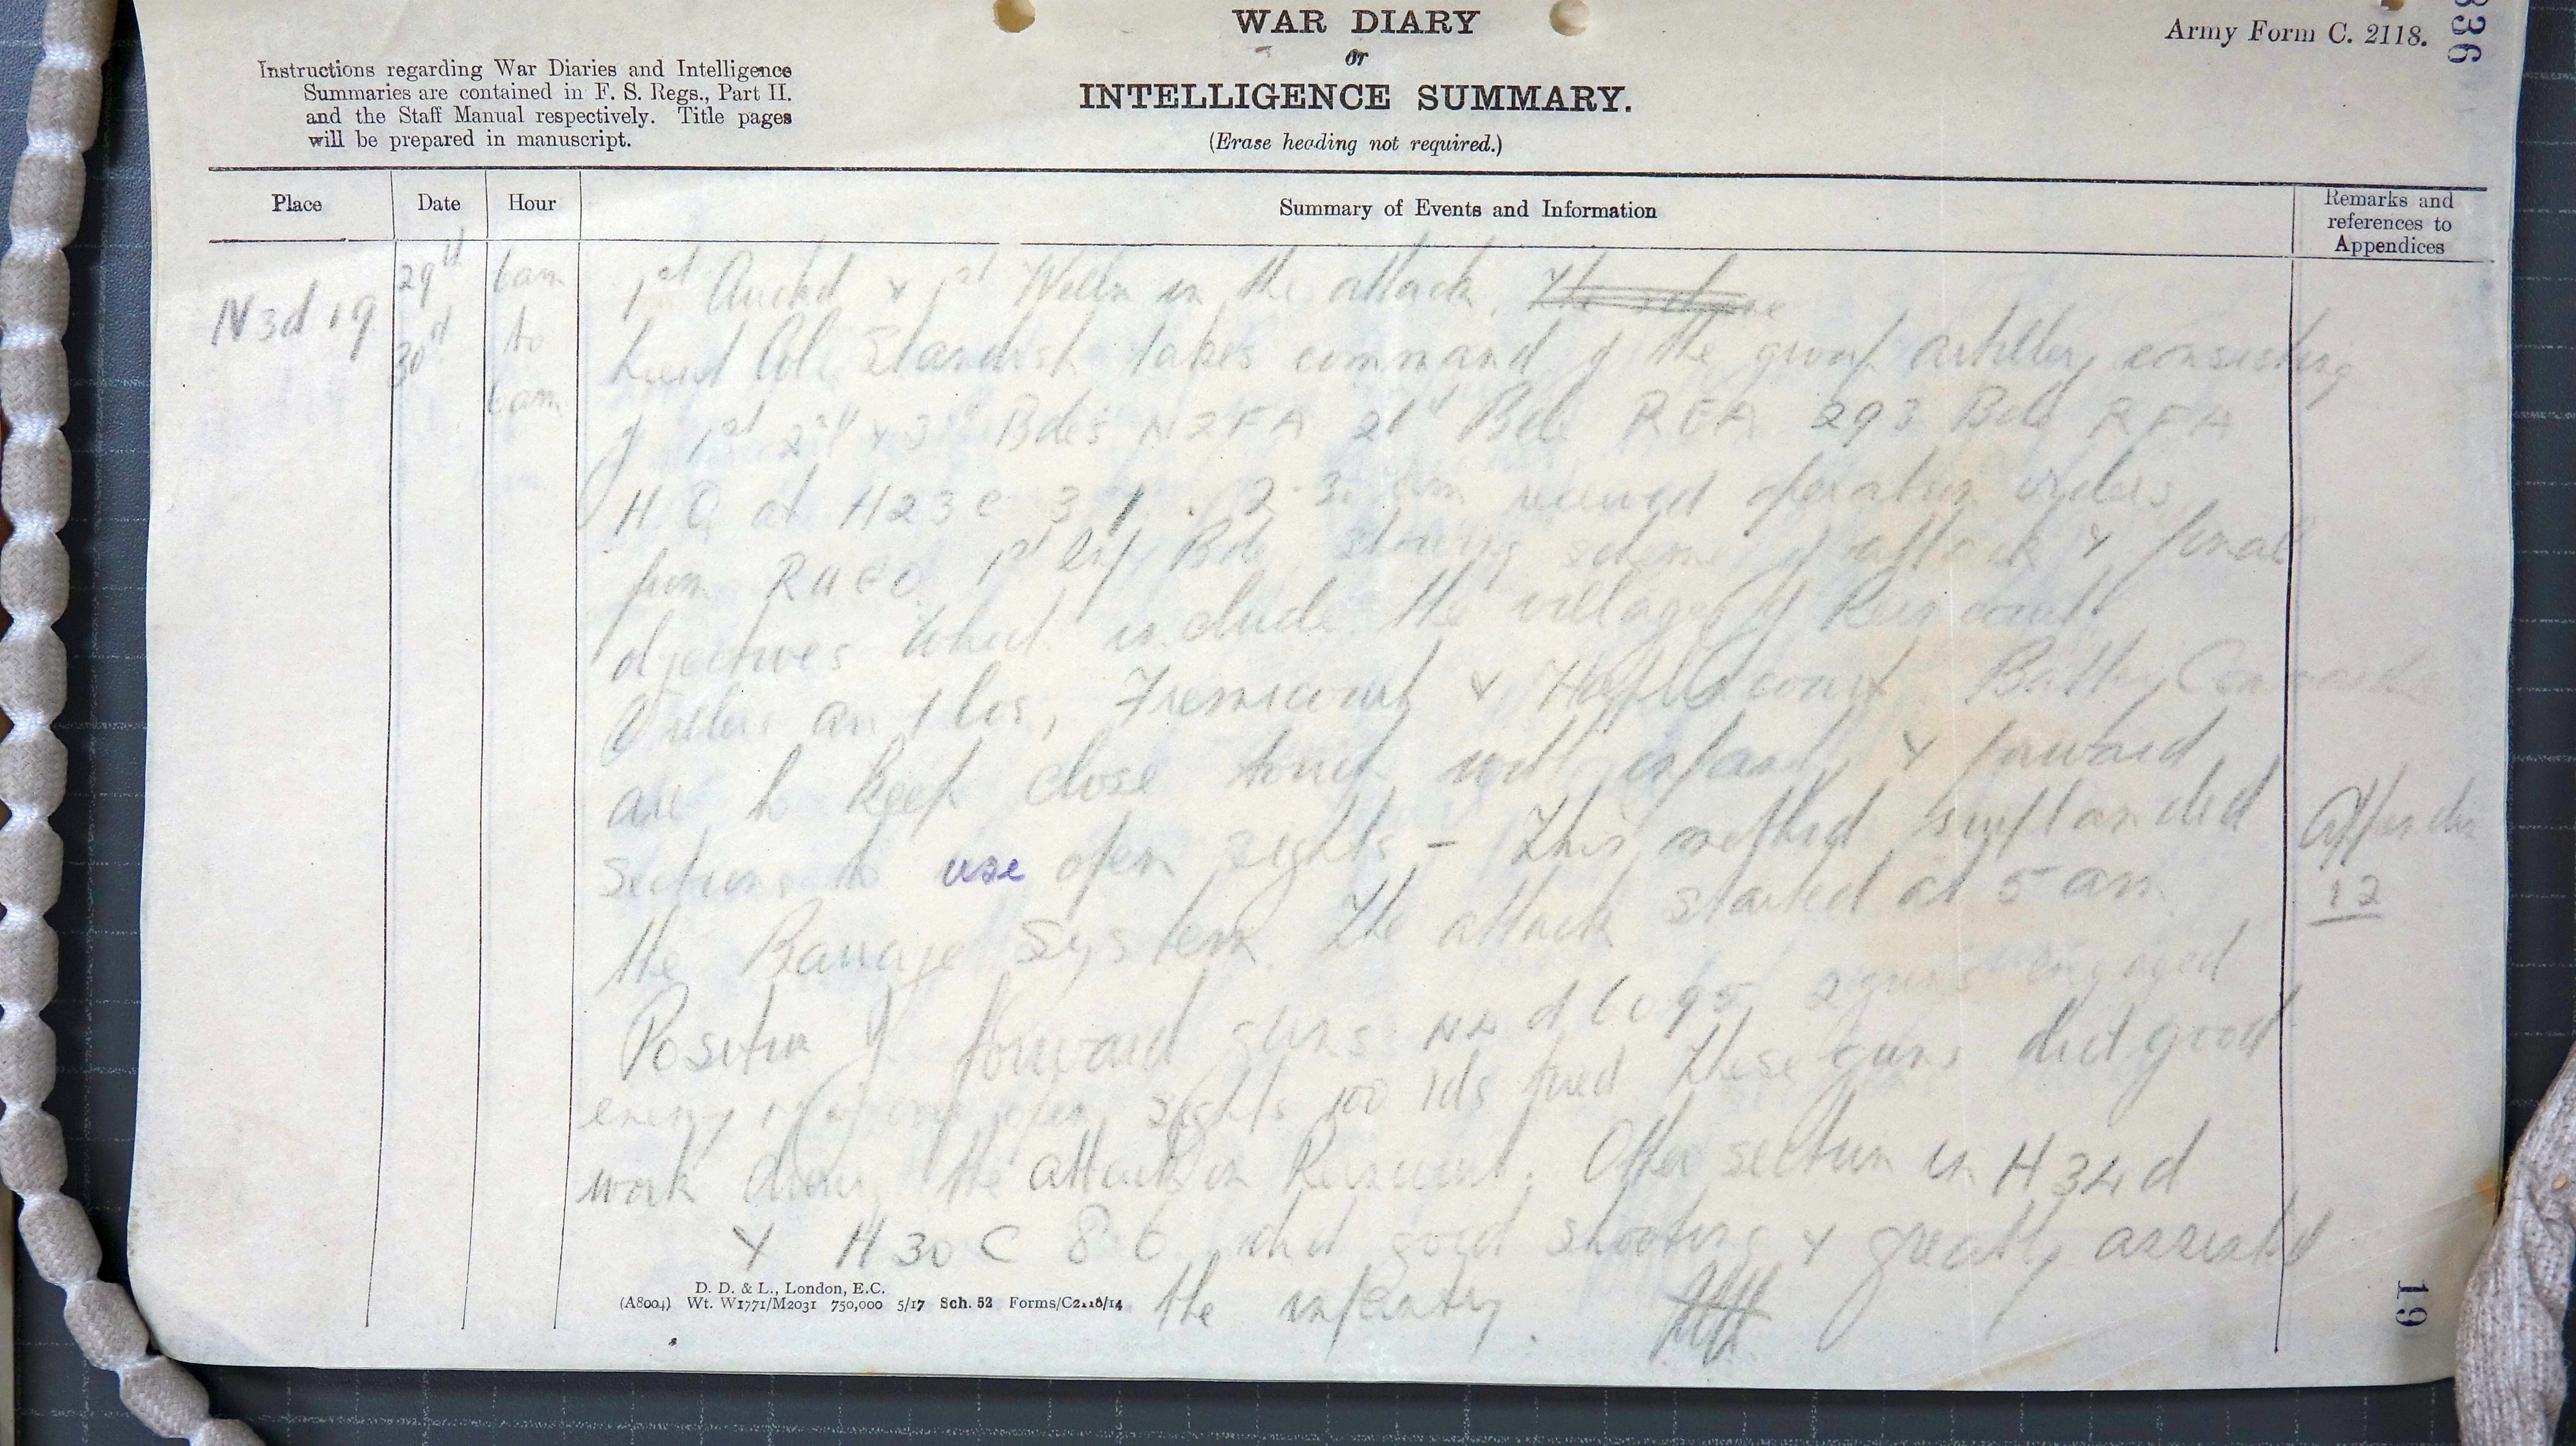 WAR DIARY
or
INTELLIGENCE SUMMARY.
(Erase heading not required.)
Army Form C. 2118.
336
Instructions regarding War Diaries and Intelligence
Summaries are contained in F. S. Regs., Part II.
and the Staff Manual respectively. Title pages
will be prepared in manuscript.
Place
Date
Hour
Summary of Events and Information
Remarks and
references to
Appendices
N 3d 19
29th
30th
6am
to
6am
1st Auckd & 1st Welln in the attack.
Lieut Col. Standish takes command of the group artillery consisting
of 1st 2nd & 3rd Bdes NZFA 21st Bde RFA 293 Bde RFA
H.Q. at H23c 3.1. received operation orders
from 1st Inf Bde showing scheme of attack & final
objectives which include the villages of
an Flos, Fremicourt & Battery
are to keep close touch with infantry & forward
sections to use open sights - This method supplanded
the Barrage System. The attack started at 5 am
Position of forward guns 2 guns engaged
enemy open sights 100 rds fired These guns did good
work during the attack on Other section in H 34 d
& H 30 C 8.6 did good shooting & greatly assisted
the infantry.
12
D. D. & L., London, E.C.
(A8004) Wt. W1771/M2031 750,000 5/17 Sch. 52 Forms/C2118/14
19